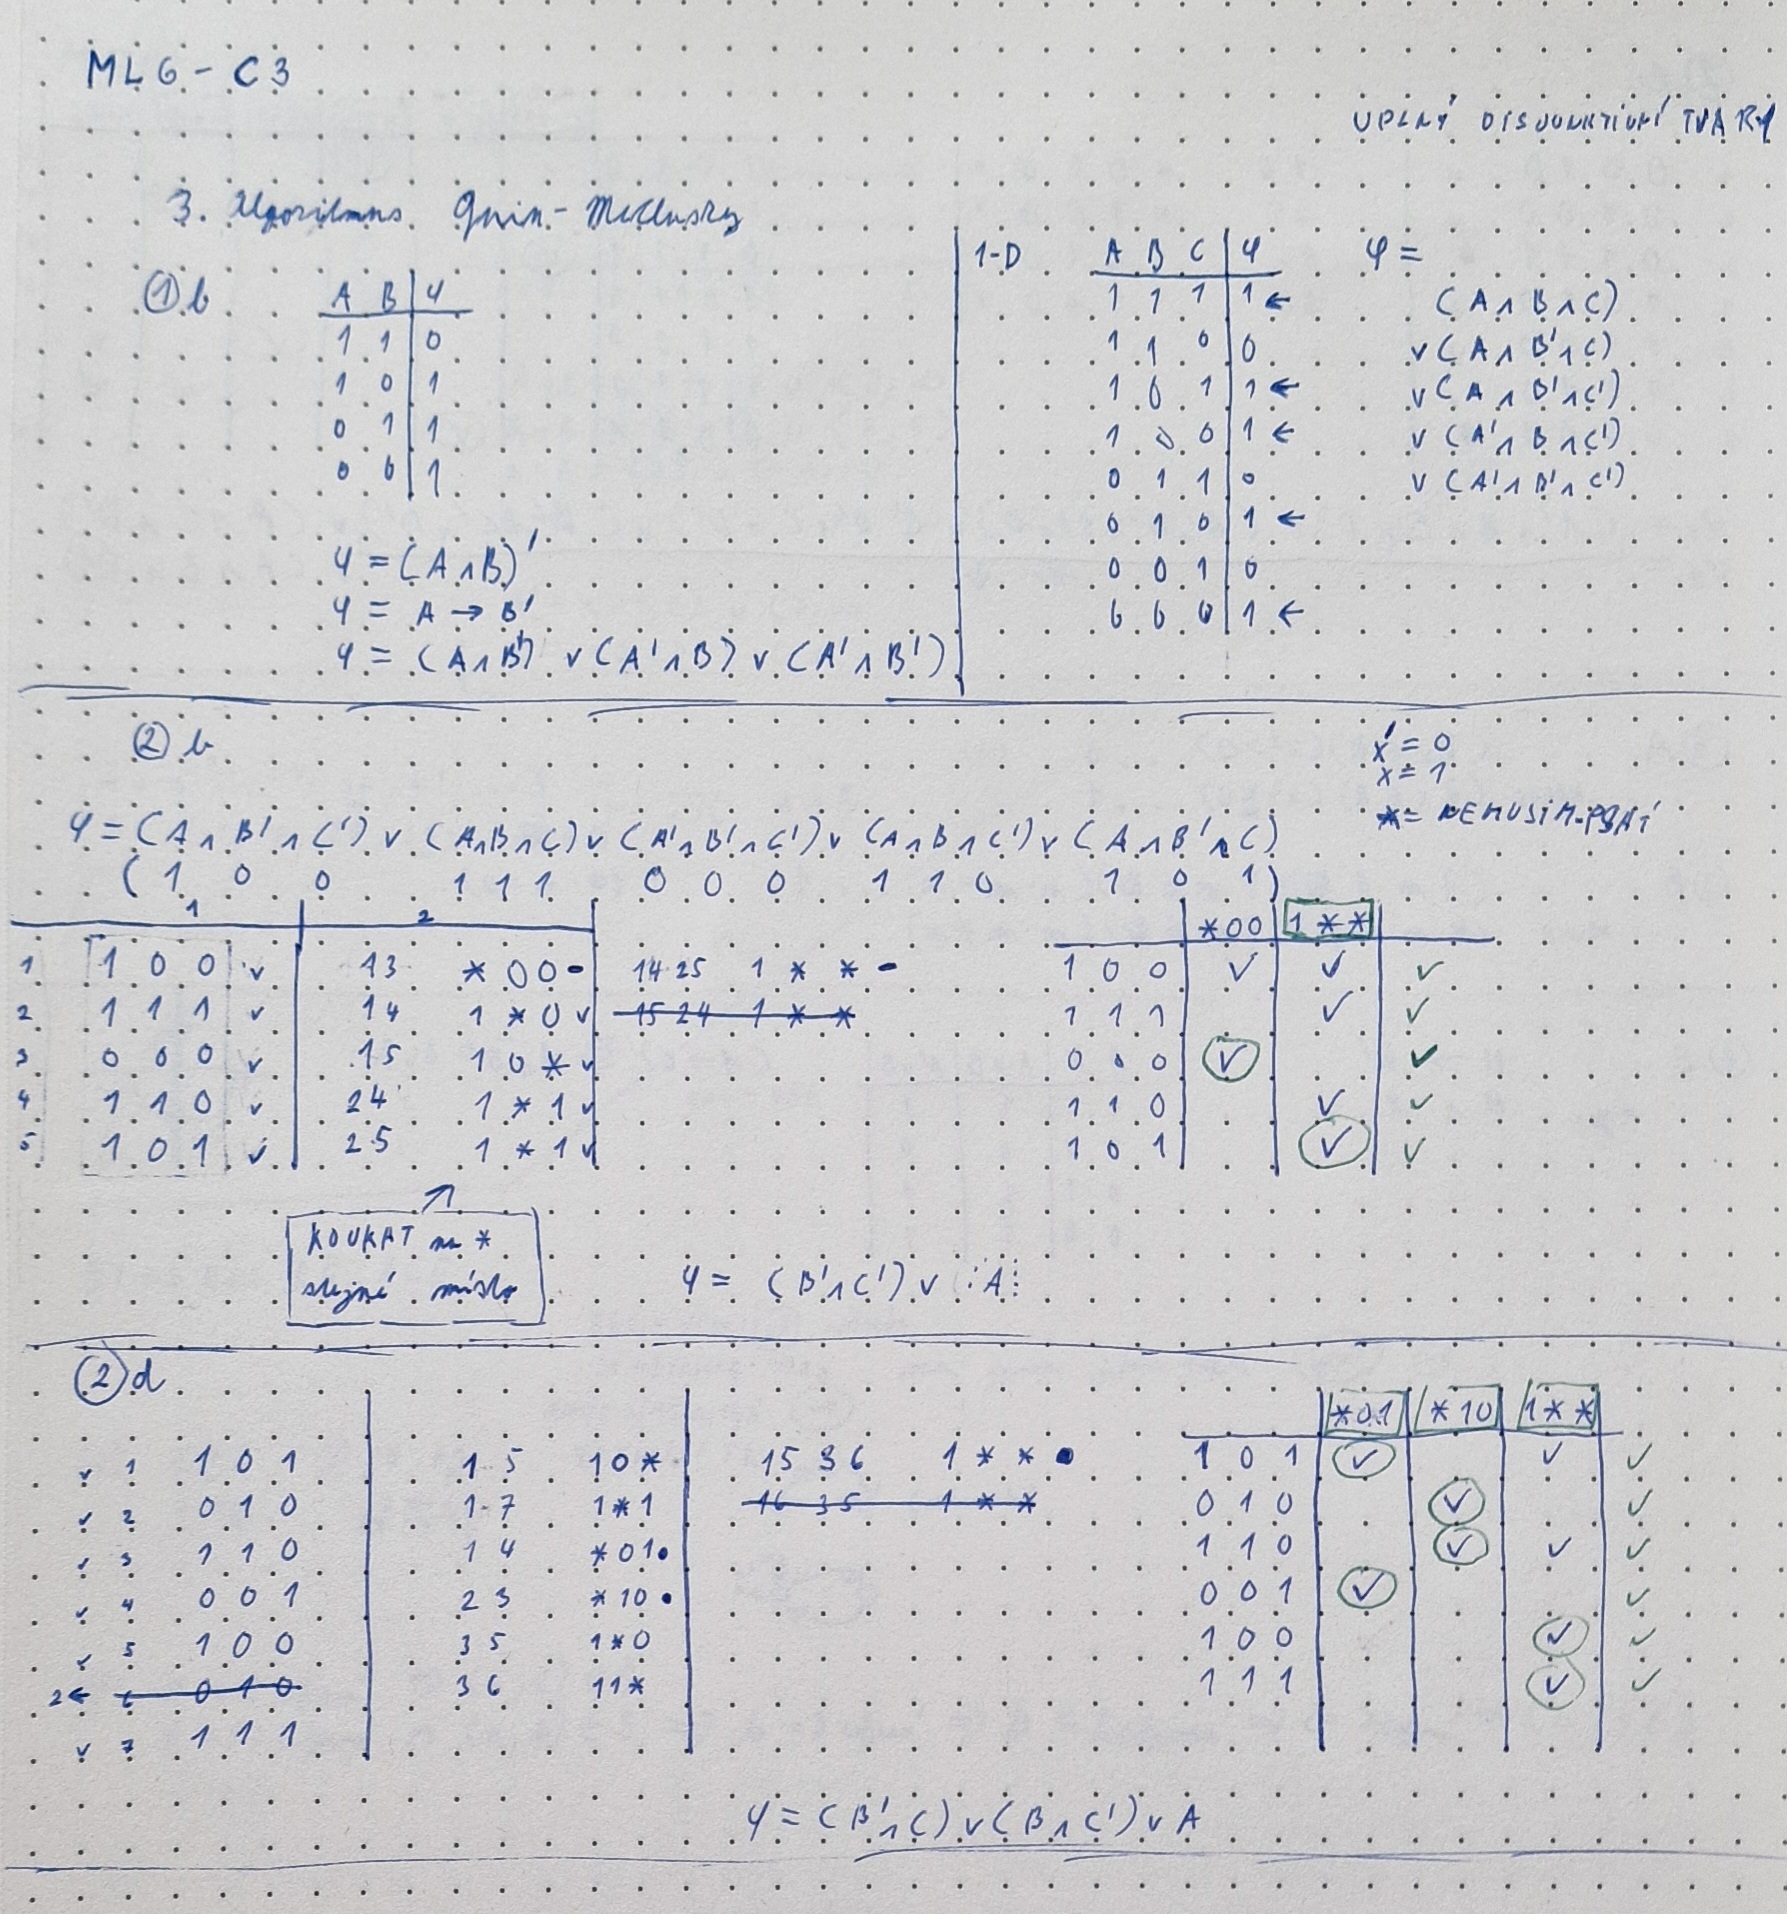 MLG - C3
UPLNÝ DISJUNKTIVNÍ TVARY
3. Algoritmus Quin - McClusky
① b
A B | φ
1 1 | 0
1 0 | 1
0 1 | 1
0 0 | 1
φ = (A ∧ B)'
φ = A → B'
φ = (A ∧ B') ∨ (A' ∧ B) ∨ (A' ∧ B')
1-D
A B C | φ
1 1 1 | 1 ←
1 1 0 | 0
1 0 1 | 1 ←
1 0 0 | 1 ←
0 1 1 | 0
0 1 0 | 1 ←
0 0 1 | 0
0 0 0 | 1 ←
φ =
(A ∧ B ∧ C)
∨ (A ∧ B' ∧ C)
∨ (A ∧ B' ∧ C')
∨ (A' ∧ B ∧ C')
∨ (A' ∧ B' ∧ C')
② b
x' = 0
x = 1
* = NEMUSÍM PSÁT
φ = (A ∧ B' ∧ C') ∨ (A ∧ B ∧ C) ∨ (A' ∧ B' ∧ C') ∨ (A ∧ B ∧ C') ∨ (A ∧ B' ∧ C)
(1 0 0 1 1 1 0 0 0 1 1 0 1 0 1)
1 2
1 1 0 0 ✓ 13 *00 - 1425 1 * * -
2 1 1 1 ✓ 14 1*0 ✓ 1524 1 * *
3 0 0 0 ✓ 15 10* ✓
4 1 1 0 ✓ 24 1*1 ✓
5 1 0 1 ✓ 25 1*1 ✓
*00 1**
1 0 0 ✓ ✓ ✓
1 1 1 ✓ ✓
0 0 0 ✓ ✓
1 1 0 ✓ ✓
1 0 1 ✓ ✓
KOUKAT na *
stejné místo
φ = (B' ∧ C') ∨ A
② d
✓ 1 1 0 1 15 10* 1536 1 * * •
✓ 2 0 1 0 1-7 1*1 16 35 1 * *
✓ 3 1 1 0 14 *01 •
✓ 4 0 0 1 23 *10 •
✓ 5 1 0 0 35 1*0
2 ← 6 0 1 0 36 11*
✓ 7 1 1 1
*01 *10 1**
1 0 1 ✓ ✓ ✓
0 1 0 ✓ ✓
1 1 0 ✓ ✓ ✓
0 0 1 ✓ ✓
1 0 0 ✓ ✓
1 1 1 ✓ ✓
φ = (B' ∧ C) ∨ (B ∧ C') ∨ A